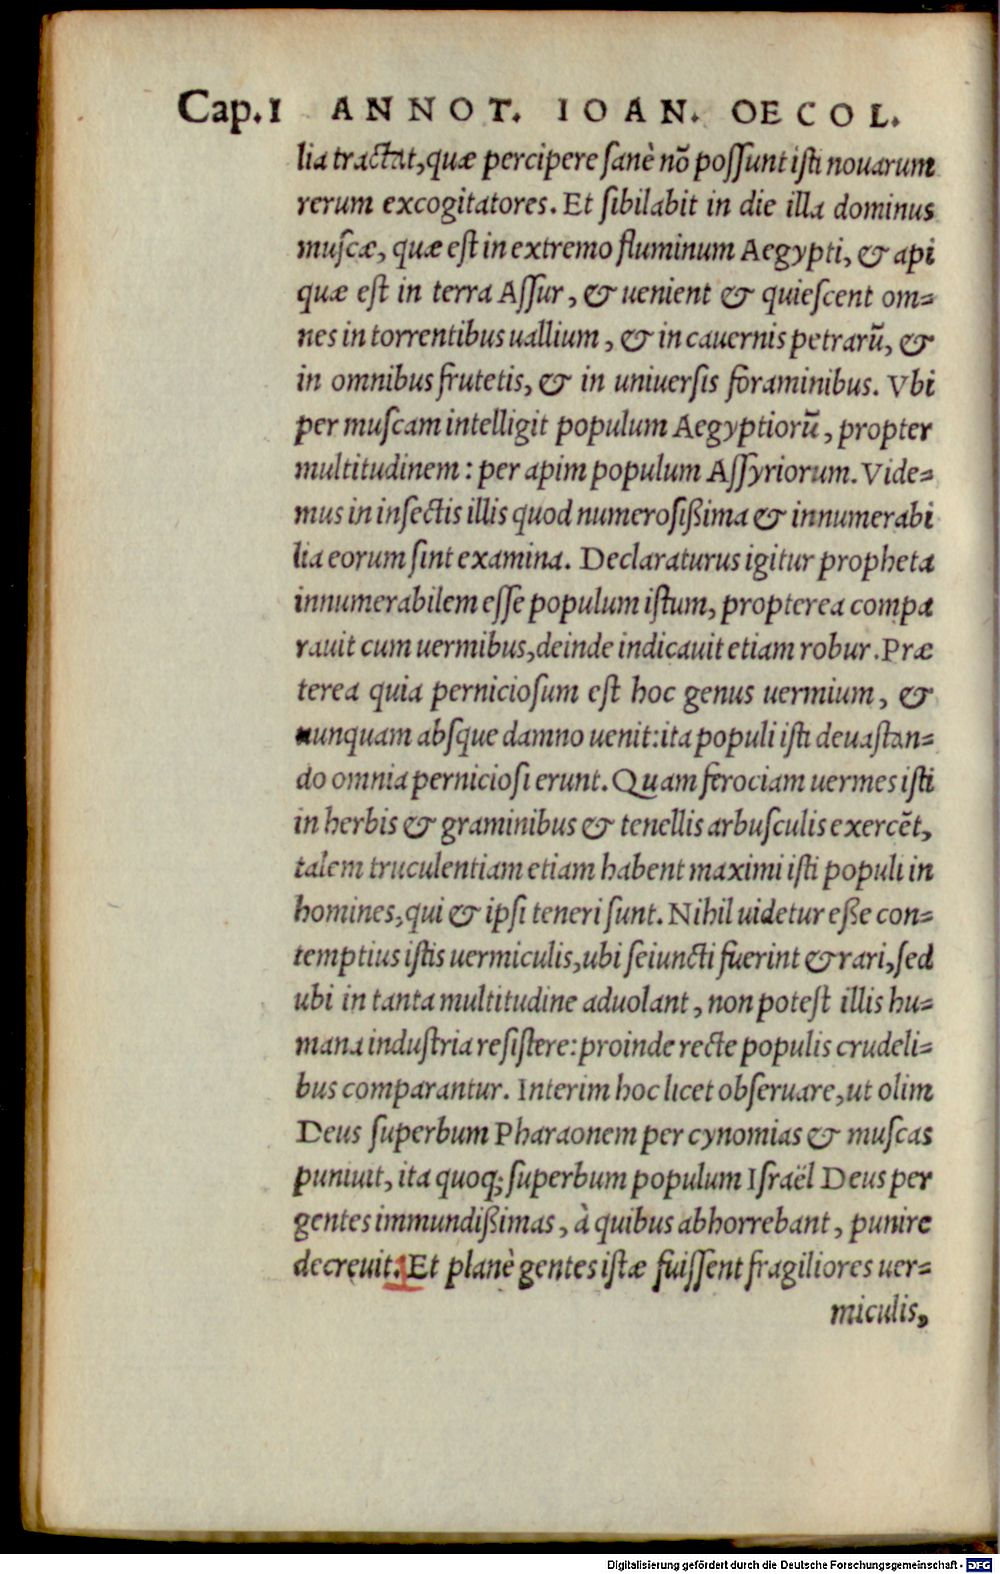 Cap.1 ANNOT. IOAN. OECOL.
lia tractat, quæ percipere sanè nō possunt isti nouarum
rerum excogitatores. Et sibilabit in die illa dominus
muscæ, quæ est in extremo fluminum Aegypti, & api
quæ est in terra Assur, & uenient & quiescent om=
nes in torrentibus uallium, & in cauernis petrarū, &
in omnibus frutetis, & in uniuersis foraminibus. Vbi
per muscam intelligit populum Aegyptiorū, propter
multitudinem: per apim populum Assyriorum. Vide=
mus in insectis illis quod numerosißima & innumerabi
lia eorum sint examina. Declaraturus igitur propheta
innumerabilem esse populum istum, propterea compa
rauit cum uermibus, deinde indicauit etiam robur. Præ
terea quia perniciosum est hoc genus uermium, &
nunquam absque damno uenit: ita populi isti deuastan=
do omnia perniciosi erunt. Quam ferociam uermes isti
in herbis & graminibus & tenellis arbusculis exercēt,
talem truculentiam etiam habent maximi isti populi in
homines, qui & ipsi teneri sunt. Nihil uidetur eße con=
temptius istis uermiculis, ubi seiuncti fuerint & rari, sed
ubi in tanta multitudine aduolant, non potest illis hu=
mana industria resistere: proinde recte populis crudeli=
bus comparantur. Interim hoc licet obseruare, ut olim
Deus superbum Pharaonem per cynomias & muscas
puniuit, ita quoq; superbum populum Israël Deus per
gentes immundißimas, à quibus abhorrebant, punire
decreuit. Et planè gentes istæ fuissent fragiliores uer=
miculis,
Digitalisierung gefördert durch die Deutsche Forschungsgemeinschaft - DFG